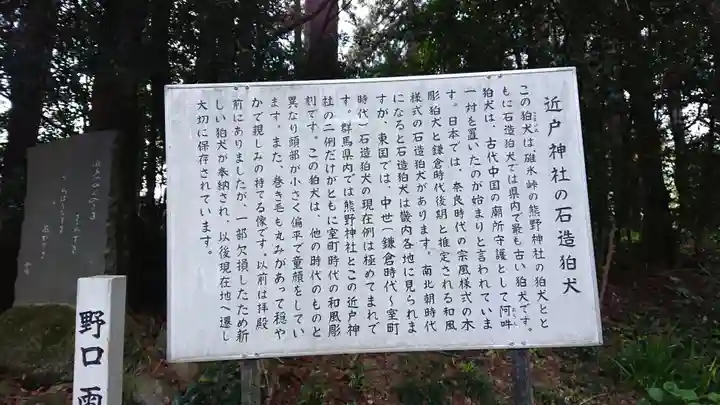 近戸神社の石造狛犬
この狛犬は碓氷峠の熊野神社の狛犬とと
もに石造狛犬では県内で最も古い狛犬です。
狛犬は、古代中国の廟所守護として阿吽
一対を置いたのが始まりと言われていま
す。日本では、奈良時代の宗風様式の木
彫狛犬と鎌倉時代後期と推定される和風
様式の石造狛犬があります。南北朝時代
になると石造狛犬は畿内各地に見られま
すが、東国では、中世（鎌倉時代～室町
時代）石造狛犬の現在例は極めてまれで
す。群馬県内では熊野神社とこの近戸神
社の二例だけがともに室町時代の和風彫
刻です。この狛犬は、他の時代のものと
異なり頭部が小さく偏平で童顔をしてい
ます。また、巻き毛も丸みがあって穏や
かで親しみの持てる像です。以前は拝殿
前にありましたが、一部欠損したため新
しい狛犬が奉納され、以後現在地へ遷し
大切に保存されています。
野口雨